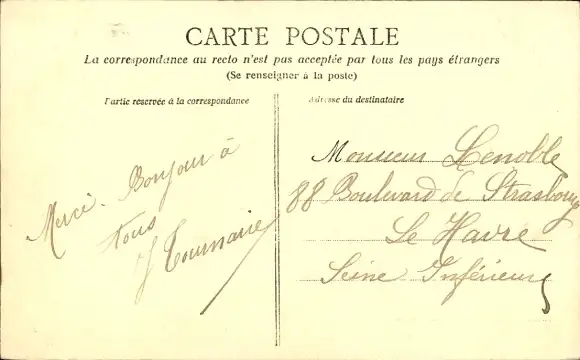 CARTE POSTALE
La correspondance au recto n'est pas acceptée par tous les pays étrangers
(Se renseigner à la poste)
Partie réservée à la correspondance
Adresse du destinataire
Merci. Bonjour à
tous
J Tournaire
Monsieur Lenoble
88 Boulevard de Strasbourg
Le Havre
Seine Inférieure